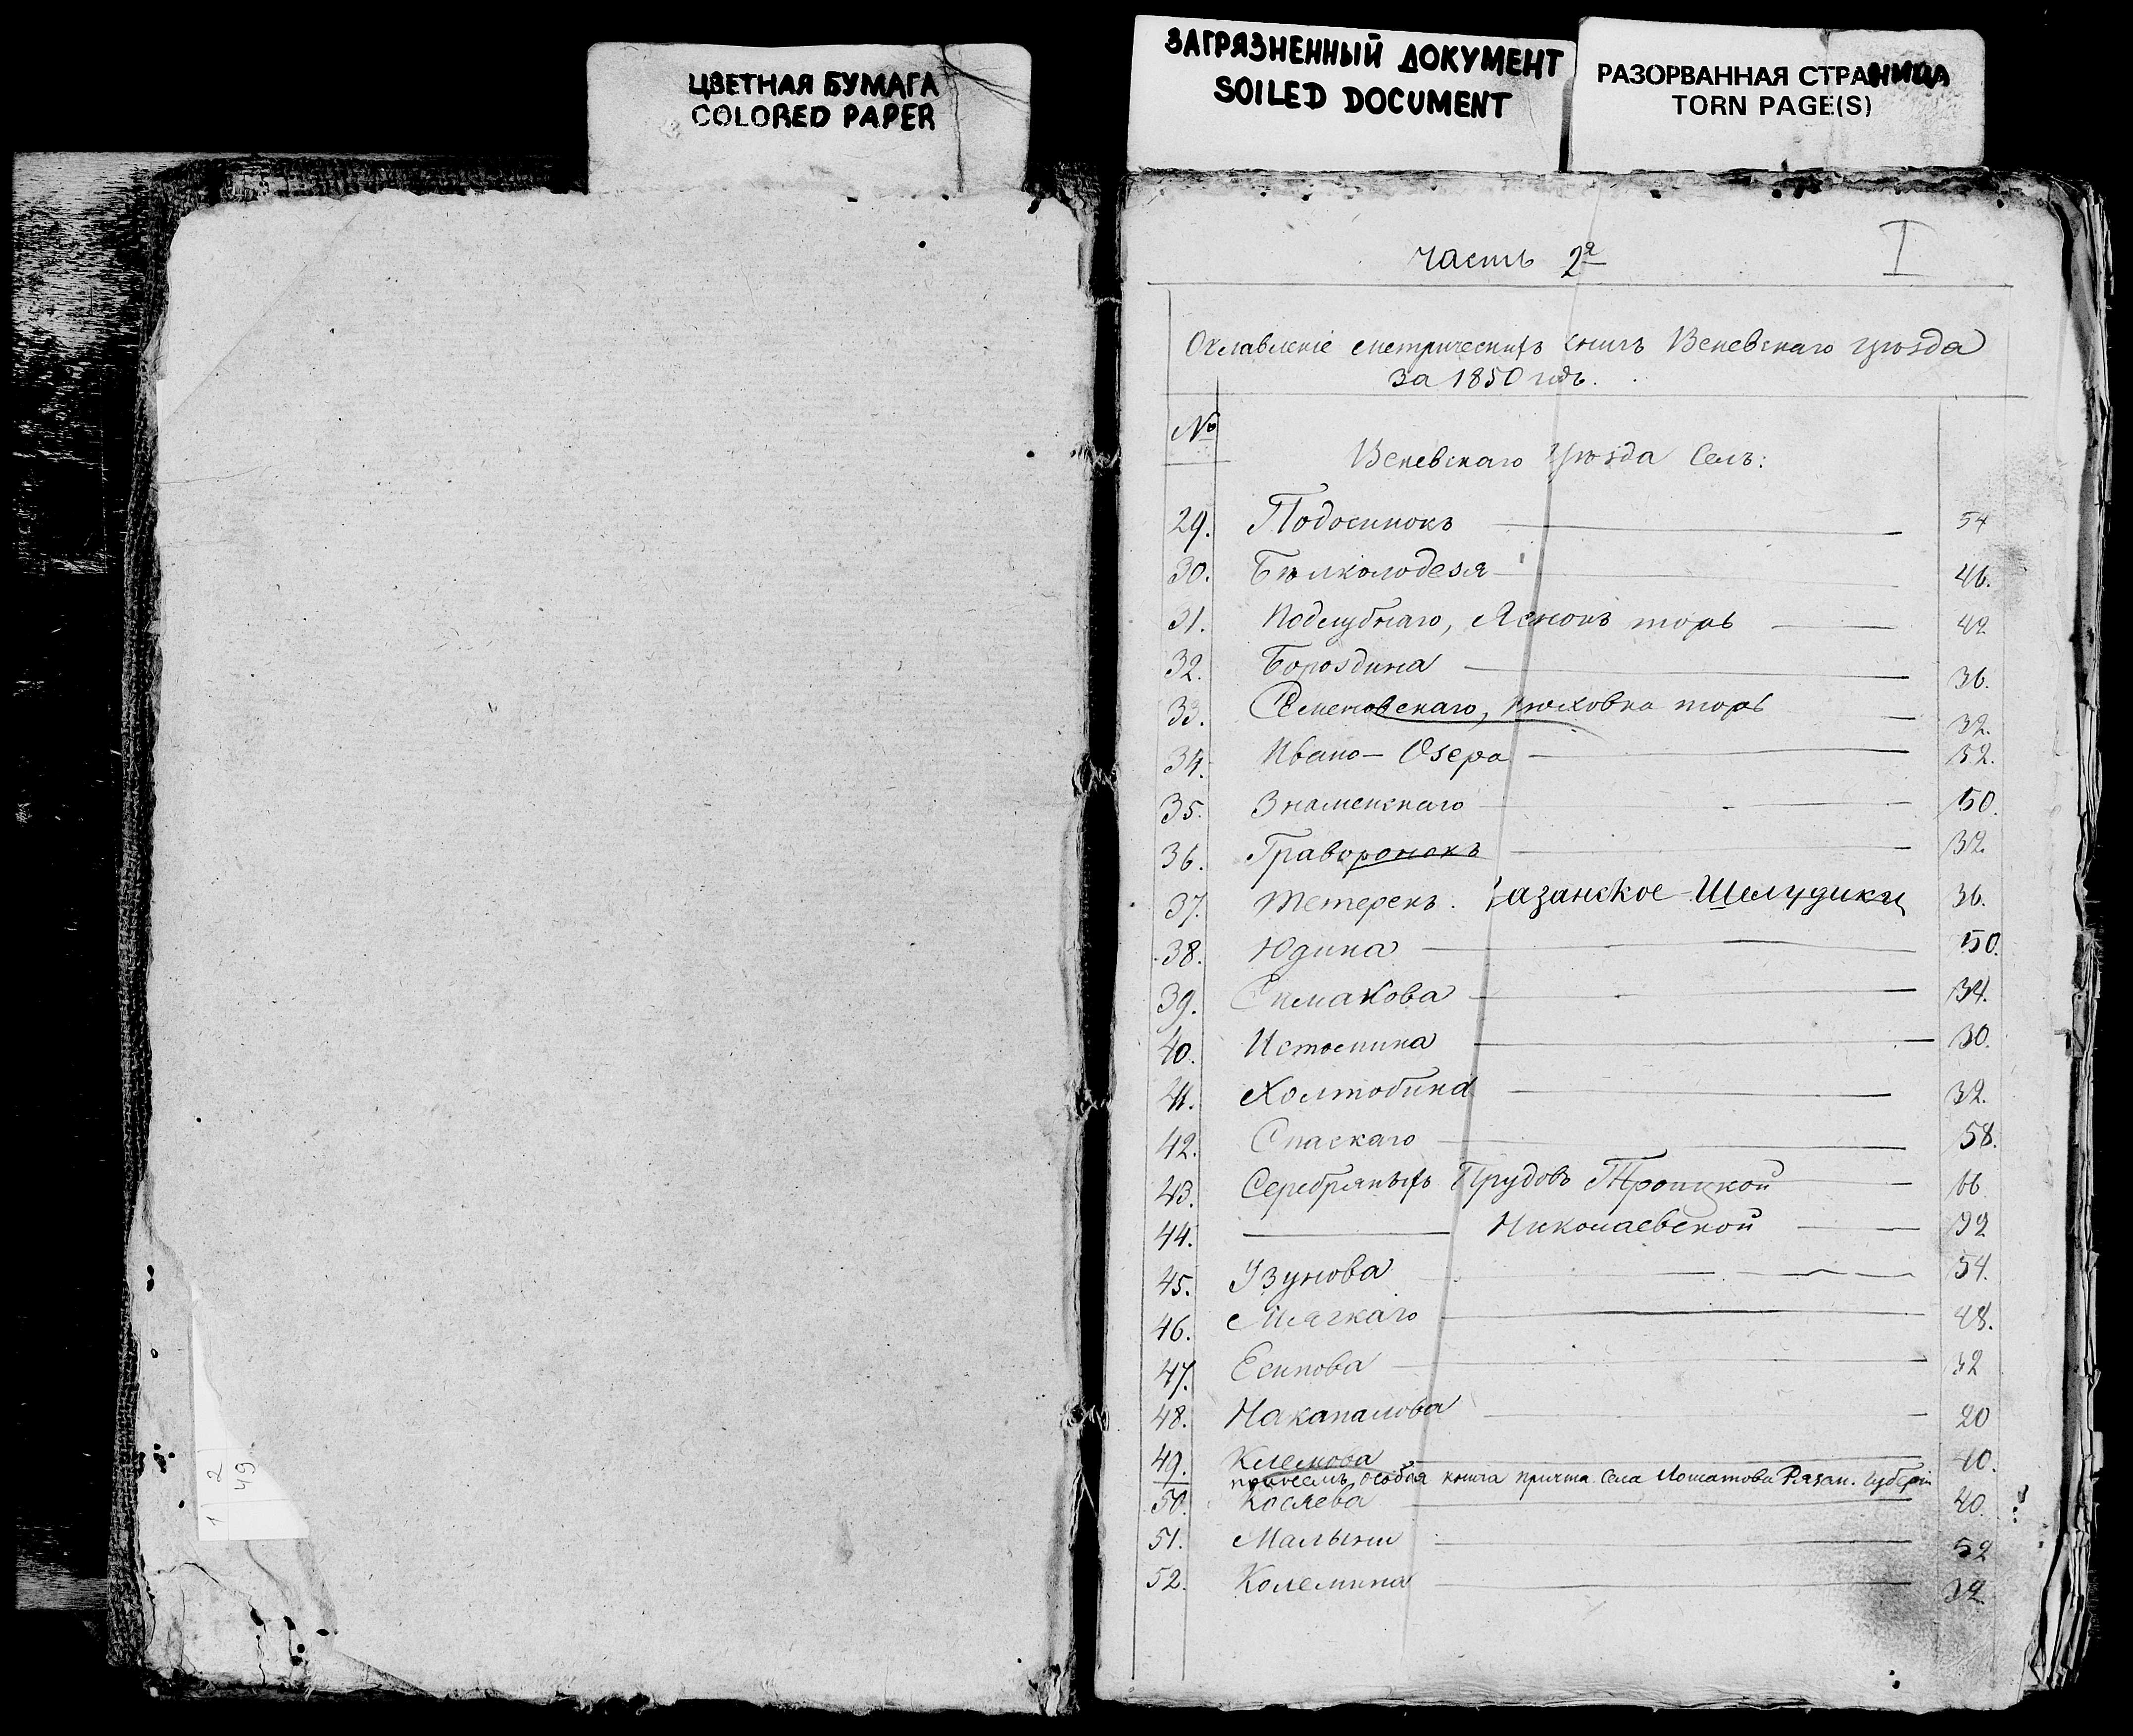 ЦВЕТНАЯ БУМАГА
COLORED PAPER
ЗАГРЯЗНЕННЫЙ ДОКУМЕНТ
SOILED DOCUMENT
РАЗОРВАННАЯ СТРАНИЦА
TORN PAGE(S)
I
Часть 2я
Оглавленіе метрическихъ книгъ Веневскаго уѣзда
за 1850 годъ.
№
Веневскаго Уѣзда Селъ:
29. Подосинокъ 54
30. Бѣлколодезя 46.
31. Подлубнаго, Ясенокъ тожъ 42
32. Бороздина 36.
33. Семеновскаго, тожъ 32.
34. Ивано-Озера 32.
35. Знаменскаго 50.
36. Граворонокъ 32.
37. Тетерекъ. Казанское-Шелудики 36.
38. Юдина 50.
39. Симахова 34.
40. Истомина 30.
41. Холтобина 32.
42. Спаскаго 58.
43. Серебряныхъ Прудовъ Троицкой 66
44. Николаевской 92
45. Узунова 54.
46. Мягкаго 48.
47. Есипова 32
48. Накапалова 20
49. Клемова 40.
при ней особая книга причта села Рязан. губерніи
50. Косяева 40.
51. Малыни 52
52. Колемина 32
1 2
49